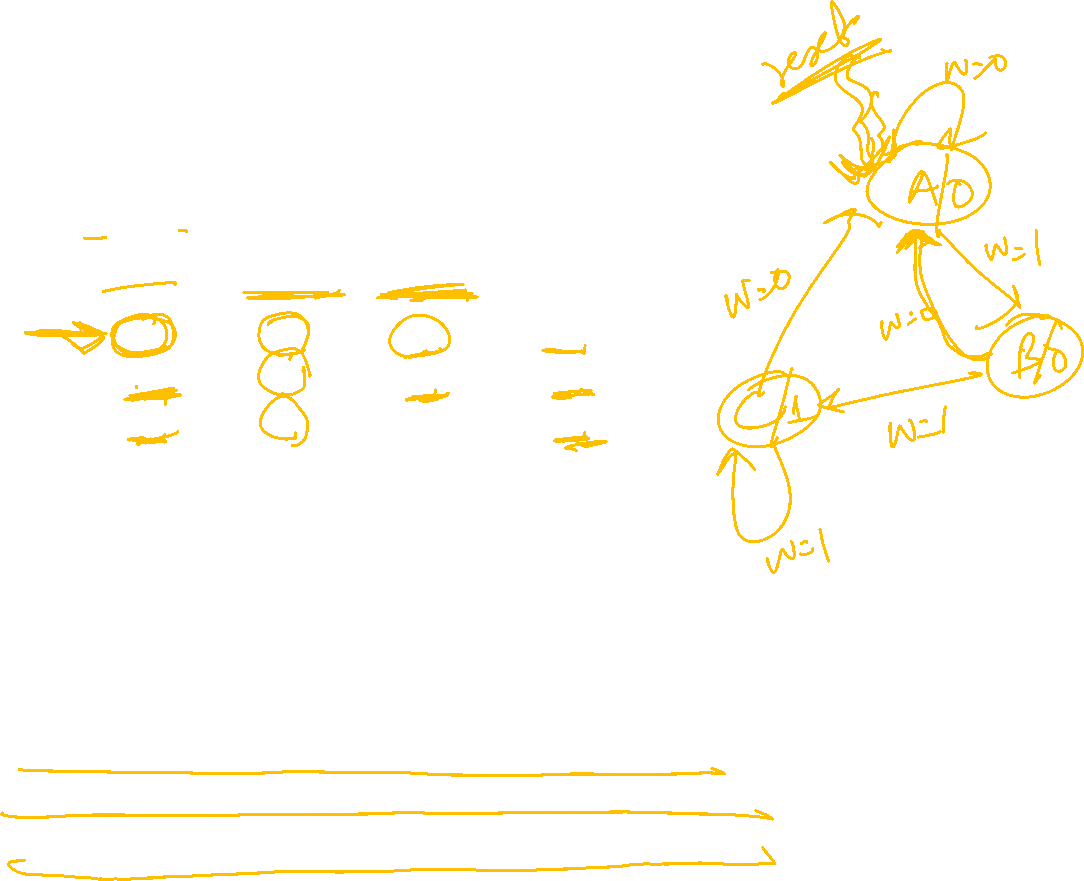 reset
w=0
A/0
w=1
w=0
w=0
B/0
C/1
w=1
w=1